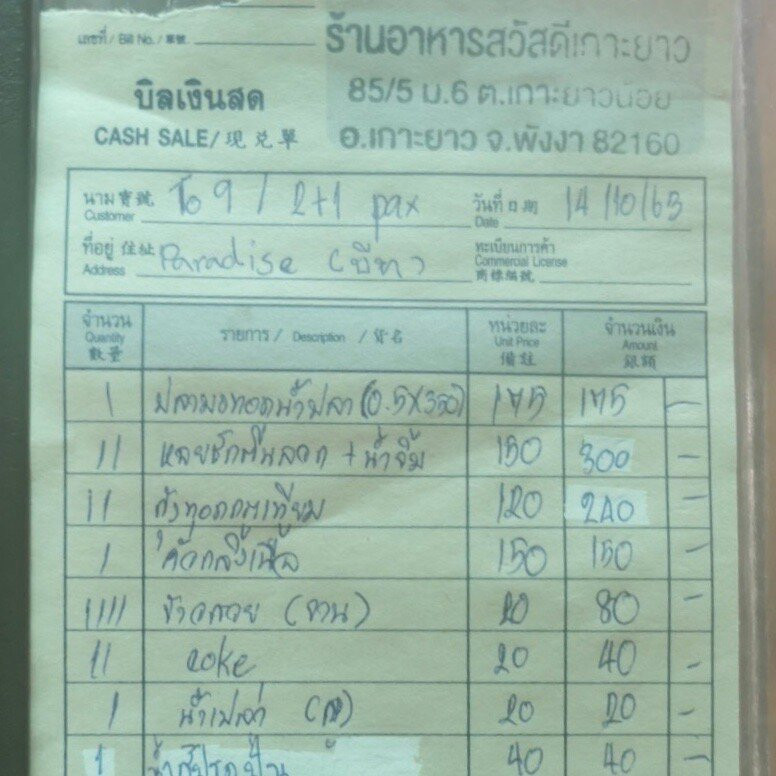 เลขที่ / Bill No. / 單號
ร้านอาหารสวัสดีเกาะยาว
บิลเงินสด
85/5 ม.6 ต.เกาะยาวน้อย
CASH SALE/ 現兌單
อ.เกาะยาว จ.พังงา 82160
นาม寶號 Customer To 9 / 2+1 pax วันที่日期 Date 14/10/65
ที่อยู่ 住址 Address Paradise (บีท) ทะเบียนการค้า Commercial License 商標編號
จำนวน Quantity 數量 รายการ / Description / 貨名 หน่วยละ Unit Price 備註 จำนวนเงิน Amount 銀額
1 (0.5x350) 175 175 -
11 หอยชักตีนลวก + น้ำจิ้ม 150 300 -
11 กุ้งทอดกระเทียม 120 240 -
1 คั่วกลิ้งเนื้อ 150 150 -
1111 ข้าวสวย (จาน) 20 80 -
11 coke 20 40 -
1 น้ำเปล่า 20 20 -
1 น้ำสับปะรดปั่น 40 40 -